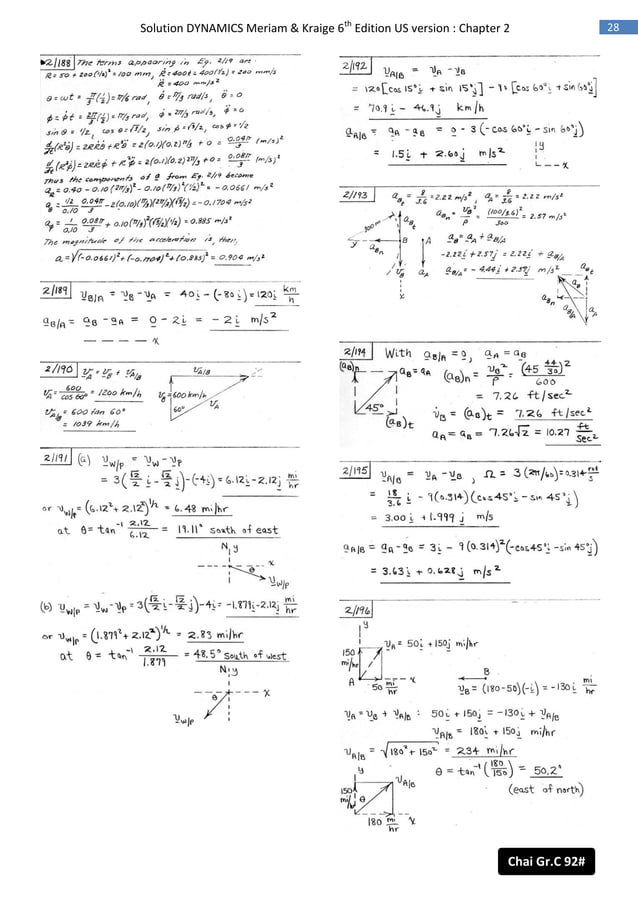 Solution DYNAMICS Meriam & Kraige 6th Edition US version : Chapter 2
28
▶2/188 The terms appearing in Eq. 2/19 are
R = 50 + 200(1/2)² = 100 mm, Ṙ = 400t = 400(1/2) = 200 mm/s
R̈ = 400 mm/s²
θ = ωt = π/3(1/2) = π/6 rad, θ̇ = π/3 rad/s, θ̈ = 0
φ = φ̇t = 2π/3(1/2) = π/3 rad, φ̇ = 2π/3 rad/s, φ̈ = 0
sin θ = 1/2, cos θ = √3/2, sin φ = √3/2, cos φ = 1/2
d/dt(R²θ̇) = 2RṘθ̇ + R²θ̈ = 2(0.1)(0.2)π/3 + 0 = 0.04π/3 (m/s)²
d/dt(R²φ̇) = 2RṘφ̇ + R²φ̈ = 2(0.1)(0.2)2π/3 + 0 = 0.08π/3 (m/s)²
Thus the components of a from Eq. 2/19 become
The magnitude of the acceleration is, then,
a = √(-0.0661)² + (-0.1704)² + (0.885)² = 0.904 m/s²
2/189 v_B/A = v_B - v_A = 40i - (-80i) = 120i km/h
a_B/A = a_B - a_A = 0 - 2i = -2i m/s²
x
2/190 v_A = v_B + v_A/B
v_A = 600/cos 60° = 1200 km/h
v_A/B = 600 tan 60°
= 1039 km/h
v_A/B
v_B = 600 km/h
60°
v_A
2/191 (a) v_W/P = v_W - v_P
= 3(√2/2 i - √2/2 j) - (-4i) = 6.12i - 2.12j mi/hr
or v_W/P = (6.12² + 2.12²)^1/2 = 6.48 mi/hr
at θ = tan⁻¹ 2.12/6.12 = 19.11° south of east
N, y
x
θ
v_W/P
(b) v_W/P = v_W - v_P = 3(√2/2 i - √2/2 j) - 4i = -1.879i - 2.12j mi/hr
or v_W/P = (1.879² + 2.12²)^1/2 = 2.83 mi/hr
at θ = tan⁻¹ 2.12/1.879 = 48.5° south of west
N, y
x
θ
v_W/P
2/192
v_A/B = v_A - v_B
= 120[cos 15°i + sin 15°j] - 90[cos 60°i + sin 60°j]
= 70.9i - 46.9j km/h
a_A/B = a_A - a_B = 0 - 3(-cos 60°i - sin 60°j)
= 1.5i + 2.60j m/s²
y
x
2/193 a_Bt = 8/3.6 = 2.22 m/s² a_A = 8/3.6 = 2.22 m/s²
a_Bn = v_B²/ρ = (100/3.6)²/300 = 2.57 m/s²
a_B = a_A + a_B/A
-2.22i + 2.57j = 2.22i + a_B/A
a_B/A = -4.44i + 2.57j m/s²
300 m
a_Bt
y
B
A
a_Bn
v_B
a_A
x
a_Bt
a_Bn
a_B/A
a_A
2/194 With a_B/A = 0, a_A = a_B
(a_B)n
a_B = a_A
(a_B)n = v_B²/ρ = (45 44/30)²/600
= 7.26 ft/sec²
45°
(a_B)t
v̇_B = (a_B)t = 7.26 ft/sec²
a_A = a_B = 7.26√2 = 10.27 ft/sec²
2/195 v_A/B = v_A - v_B , Ω = 3(2π/60) = 0.314 rad/s
= 18/3.6 i - 9(0.314)(cos45°i - sin 45°j)
= 3.00i + 1.999j m/s
a_A/B = a_A - a_B = 3i - 9(0.314)²(-cos45°i - sin 45°j)
= 3.63i + 0.628j m/s²
2/196
y
150 mi/hr
v_A = 50i + 150j mi/hr
A
50 mi/hr
x
B
v_B = (180-50)(-i) = -130i mi/hr
v_A = v_B + v_A/B : 50i + 150j = -130i + v_A/B
v_A/B = 180i + 150j mi/hr
v_A/B = √180² + 150² = 234 mi/hr
y
θ = tan⁻¹(180/150) = 50.2°
(east of north)
150 mi/hr
θ
v_A/B
180 mi/hr
x
Chai Gr.C 92#